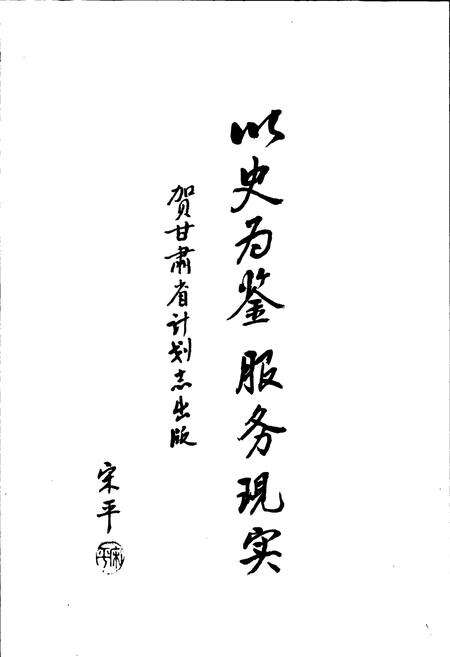 以史为鉴 服务现实
贺甘肃省计划志出版
宋平